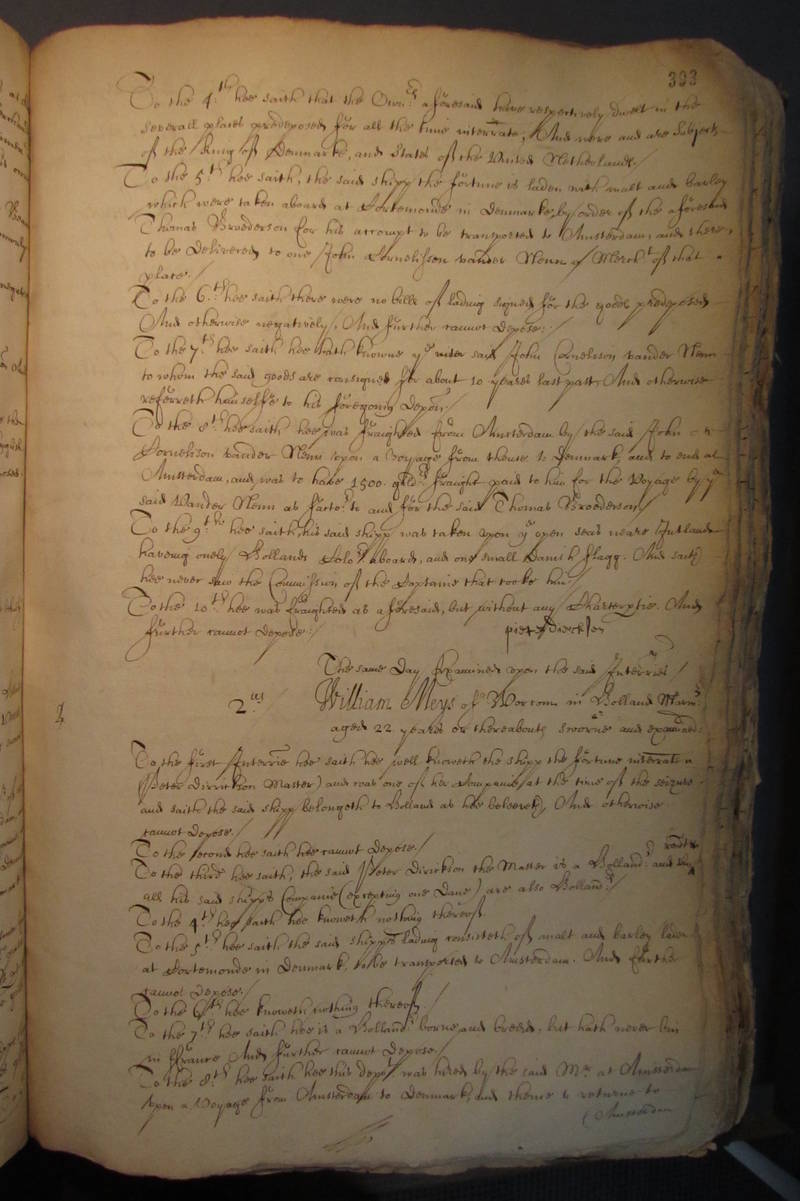 393
To the 4.th hee saith that the Own.rs aforesaid have respectively dwelt in the
severall places predeposed for all the time interrate, And were and are Subjects
of the King of Denmarke, and States of the United Netherlands./
To the 5.th hee saith, the said shipp the fortune is laden with malt and barley
which were taken aboard at in Denmarke, by order of the aforesaid
Thomas Broederson for his accompt to be transported to Amsterdam, and there
to be delivered to one John Cornelisson vander Merch.t of that
place./
To the 6.th hee saith there were no bills of lading signed for the goods predeposed
And otherwise negatively. And further cannot depose./
To the 7.th hee saith hee hath knowne y.e said John Cornelisson vander
to whom the said goods are consigned for about 10 yeares last past. And otherwise
referreth himselfe to his foregoing depon./
To the 8.th hee saith hee was fraighted from Amsterdam by the said John
Cornelison vander upon a voyage from thence to Denmark, and to end at
Amsterdam, and was to have 1500. fraught paid to him for the Voyage by y.e
said Vander as facto.r to and for the said Thomas Broederson./
To the 9.th hee saith, his said shipp was taken upon y.e open seas neare Jutland
having onely Hollands Colo.rs aboard, and one small Danish flagg. And saith
hee never saw the Commission of the Captaine that tooke him./
To the 10.th hee was fraighted as aforesaid, but without any Charterptie. And
further cannot depose./
pieter diercksen
The same day Examined upon the said Interries./
2.us William Meys of in Holland Marin.r
aged 22 yeares or thereabouts sworne and examined.
To the first Interrie hee saith hee well knoweth the shipp the fortune interrate
(Peter Dirrickson Master) and was one of her Companie at the time of the seizure
and saith the said shipp belongeth to Holland as hee beleeveth, And otherwise
cannot depose./
To the second hee saith hee cannot depose./
To the third hee saith, the said Peter Dirrickson the Master is a Holland.r and
all his said shipps Companie (excepting one Dane) are also Holland.rs/
To the 4.th hee saith hee knoweth nothing thereof.
To the 5.th hee saith the said shipps lading consisteth of malt and barley
at in Denmark, to be transported to Amsterdam. And further
cannot depose./
To the 6.th hee knoweth nothing thereof./
To the 7.th hee saith hee is a Holland.r borne and breed, but hath never bin
in ffrance And further cannot depose./
To the 8.th hee saith hee this depo.t was hired by the said M.r at Amsterdam
upon a Voyage from Amsterdam to Denmark, and thence to returne to
Amsterdam